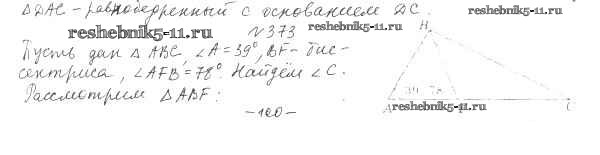 ΔDAC - равнобедренный с основанием DC.
reshebnik5-11.ru №373 reshebnik5-11.ru
Пусть дан Δ ABC, ∠A = 39°, BF - бис-
сектриса, ∠AFB = 78°. Найдём ∠C.
Рассмотрим Δ ABF:
- 120 -
reshebnik5-11.ru